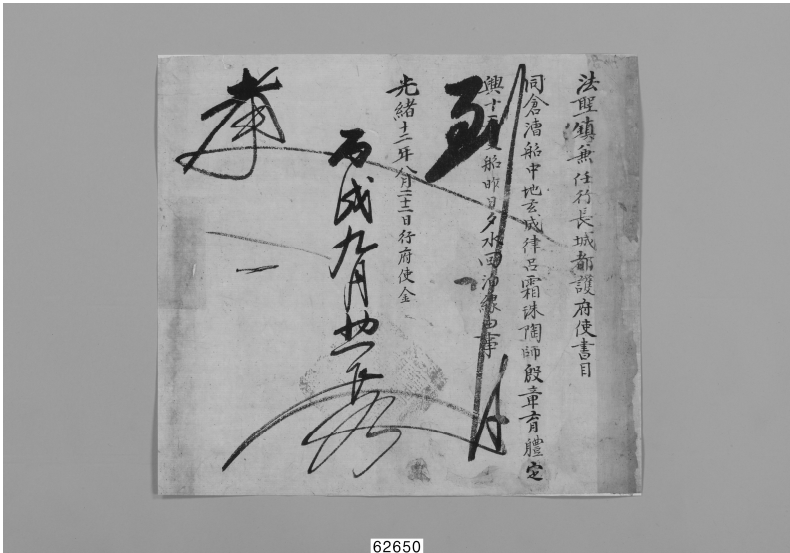 法聖鎭兼任行長城都護府使書目
同倉漕船中地玄成律呂霜珠陶師殷章育體定
興十 船昨日夕水回泊緣由事
光緖十二年八月二十二日行府使金
到
丙戌九月初一日
62650